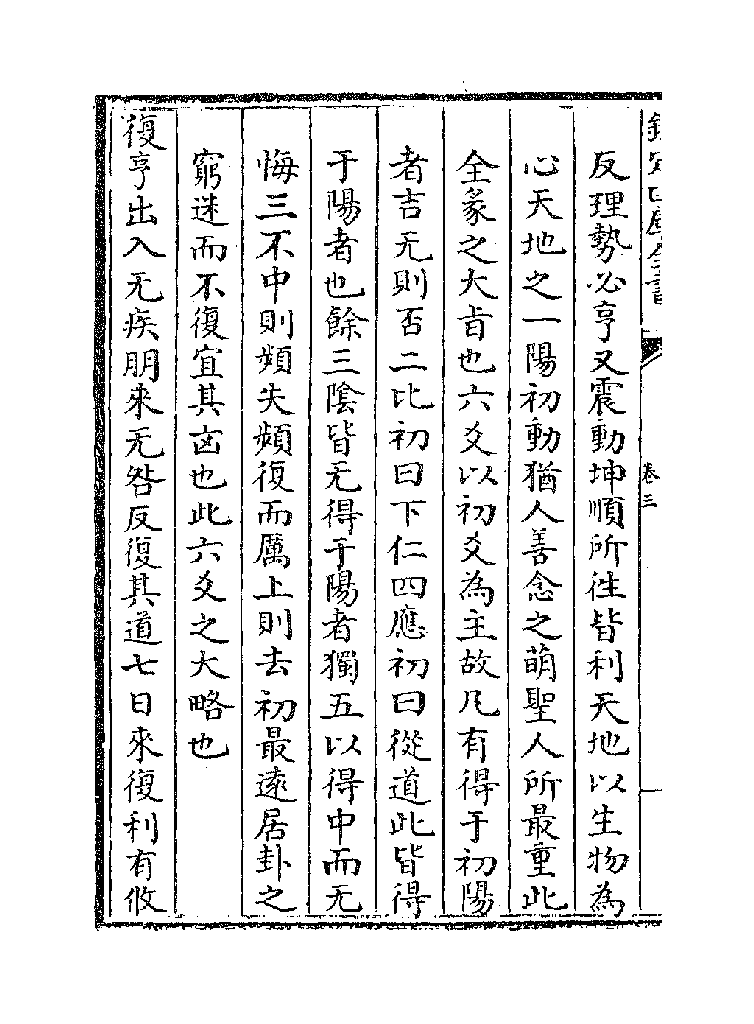 欽定四庫全書
卷三
反理勢必亨又震動坤順所徃皆利天地以生物為
心天地之一陽初動猶人善念之萌聖人所最重此
全彖之大㫖也六爻以初爻為主故凡有得于初陽
者吉无則否二比初曰下仁四應初曰從道此皆得
于陽者也餘三陰皆无得于陽者獨五以得中而无
悔三不中則頻失頻復而厲上則去初最逺居卦之
窮迷而不復宜其凶也此六爻之大略也
復亨出入无疾朋來无咎反復其道七日來復利有攸